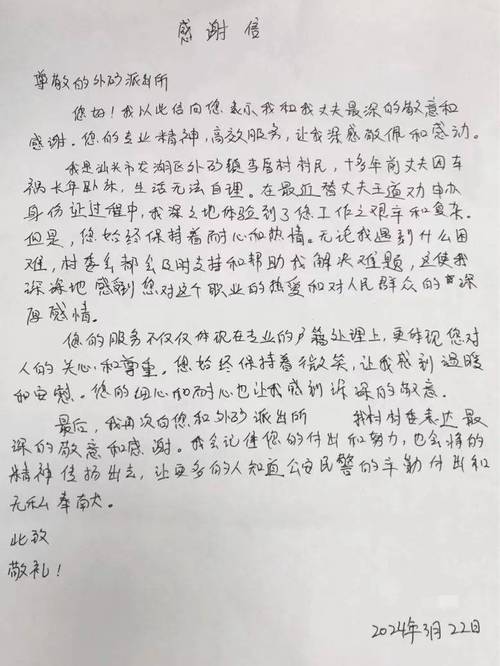 感谢信
尊敬的外砂派出所
您好!我以此信向您表示我和我丈夫最深的敬意和
感谢。您的专业精神,高效服务,让我深感敬佩和感动。
我是汕头市龙湖区外砂镇李厝村村民,十多年前丈夫因车
祸长年卧床,生活无法自理。在最近替丈夫王道功申办
身份证过程中,我深深地体验到了您工作之艰辛和复杂。
但是,您始终保持着耐心和热情。无论我遇到什么困
难,村委会都会及时支持和帮助我解决难题,这使我
深深地感到您对这个职业的热爱和对人民群众的深
厚感情。
您的服务不仅仅体现在专业的户籍处理上,更体现您对
人的关心和尊重。您始终保持着微笑,让我感到温暖
和安慰。您的细心和耐心也让我感到诉深的敬意.
最后,我再次向您和外砂派出所 我村村委表达最
深的敬意和感谢。我会记住您的付出和努力,也会将的
精神传扬出去,让更多的人知道公安民警的辛勤付出和
无私奉献。
此致
敬礼!
2024年3月22日